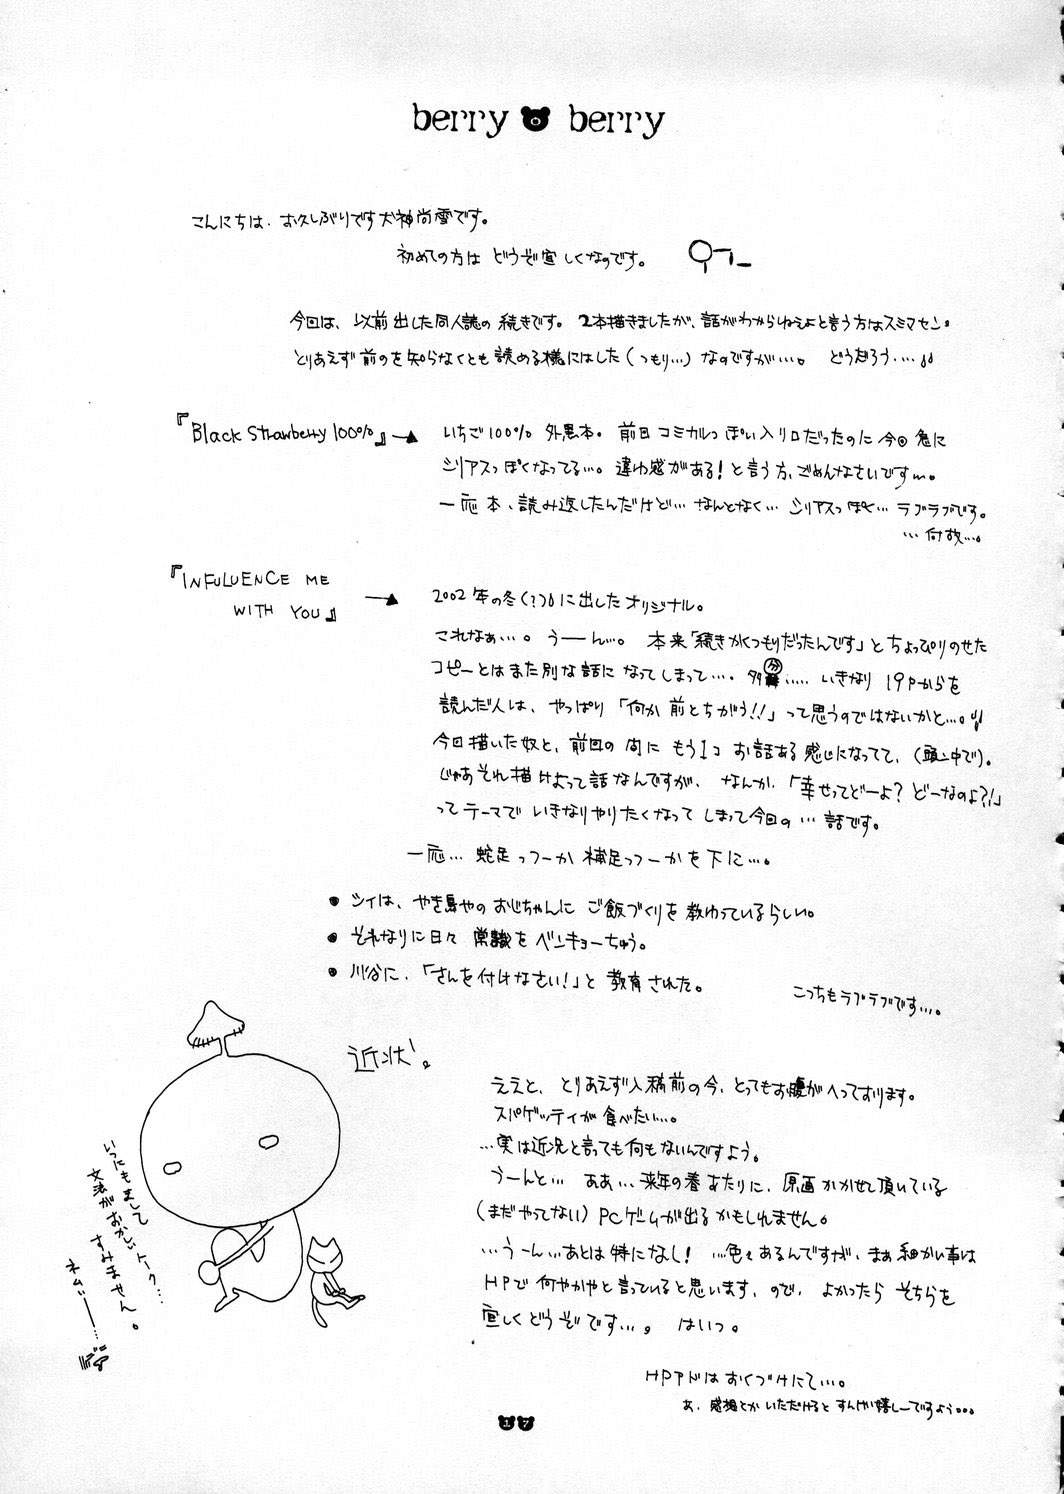 berry berry
こんにちは、お久しぶりです犬神尚雪です。
初めての方は どうぞ宜しくなのです。
今回は、以前出した同人誌の続きです。2本描きましたが、話がわからねぇよと言う方はスミマセン。
とりあえず前のを知らなくとも読める様にはした(つもり…)なのですが…。 どうだろう‥‥
『Black Strawberry 100%』→ いちご100% 外黒本。前回コミカルっぽい入り口だったのに今回急に
シリアスっぽくなってる…。違和感がある!と言う方、ごめんなさいです。
一応本、読み返したんだけど… なんとなく… シリアスっぽく… ラブラブです。
…何故…。
『INFULUENCE ME
WITH YOU』
→ 2002年の冬(?)に出したオリジナル。
これなぁ…。うーん…。本来「続きかくつもりだったんです」とちょっぴりのせた
コピーとはまた別な話になってしまって…。多分….. いきなり 19Pからを
読んだ人は、やっぱり「何か前とちがう!!」って思うのではないかと…。
今回描いた奴と、前回の間に もう1コ お話ある感じになってて、(頭ン中で)。
じゃあそれ描けよって話なんですが、なんか、「幸せってどーよ?どーなのよ?!」
ってテーマで いきなりやりたくなって しまって今回の…話です。
一応… 蛇足っつーか 補足っつーかを下に…。
● シイは、やき鳥やのおじちゃんに ご飯づくりを教わっているらしい。
● それなりに日々 常識を ベンキョーちゅう。
● 川谷に、「さんを付けなさい!」と 教育された。
こっちもラブラブです…。
近状。
ええと、とりあえず入稿前の今、とってもお腹がへっております。
スパゲッティが食べたい…。
…実は近況と言っても何もないんですよう。
うーんと… ああ… 来年の春あたりに、原画かかせて頂いている
(まだやってない)PCゲームが出るかもしれません。
…うーん…あとは特になし! …色々あるんですが、まぁ細かい事は
HPで何やかやと言っていると思います、ので、よかったら そちらを
宜しくどうぞです…。 はいっ。
HPアドはおくづけにて…。
あ、感想とかいただけると すんげい嬉しーですよう。。。
いつにもまして
文法がおかしいトーク‥‥
すみません。
ネムいーー…
17